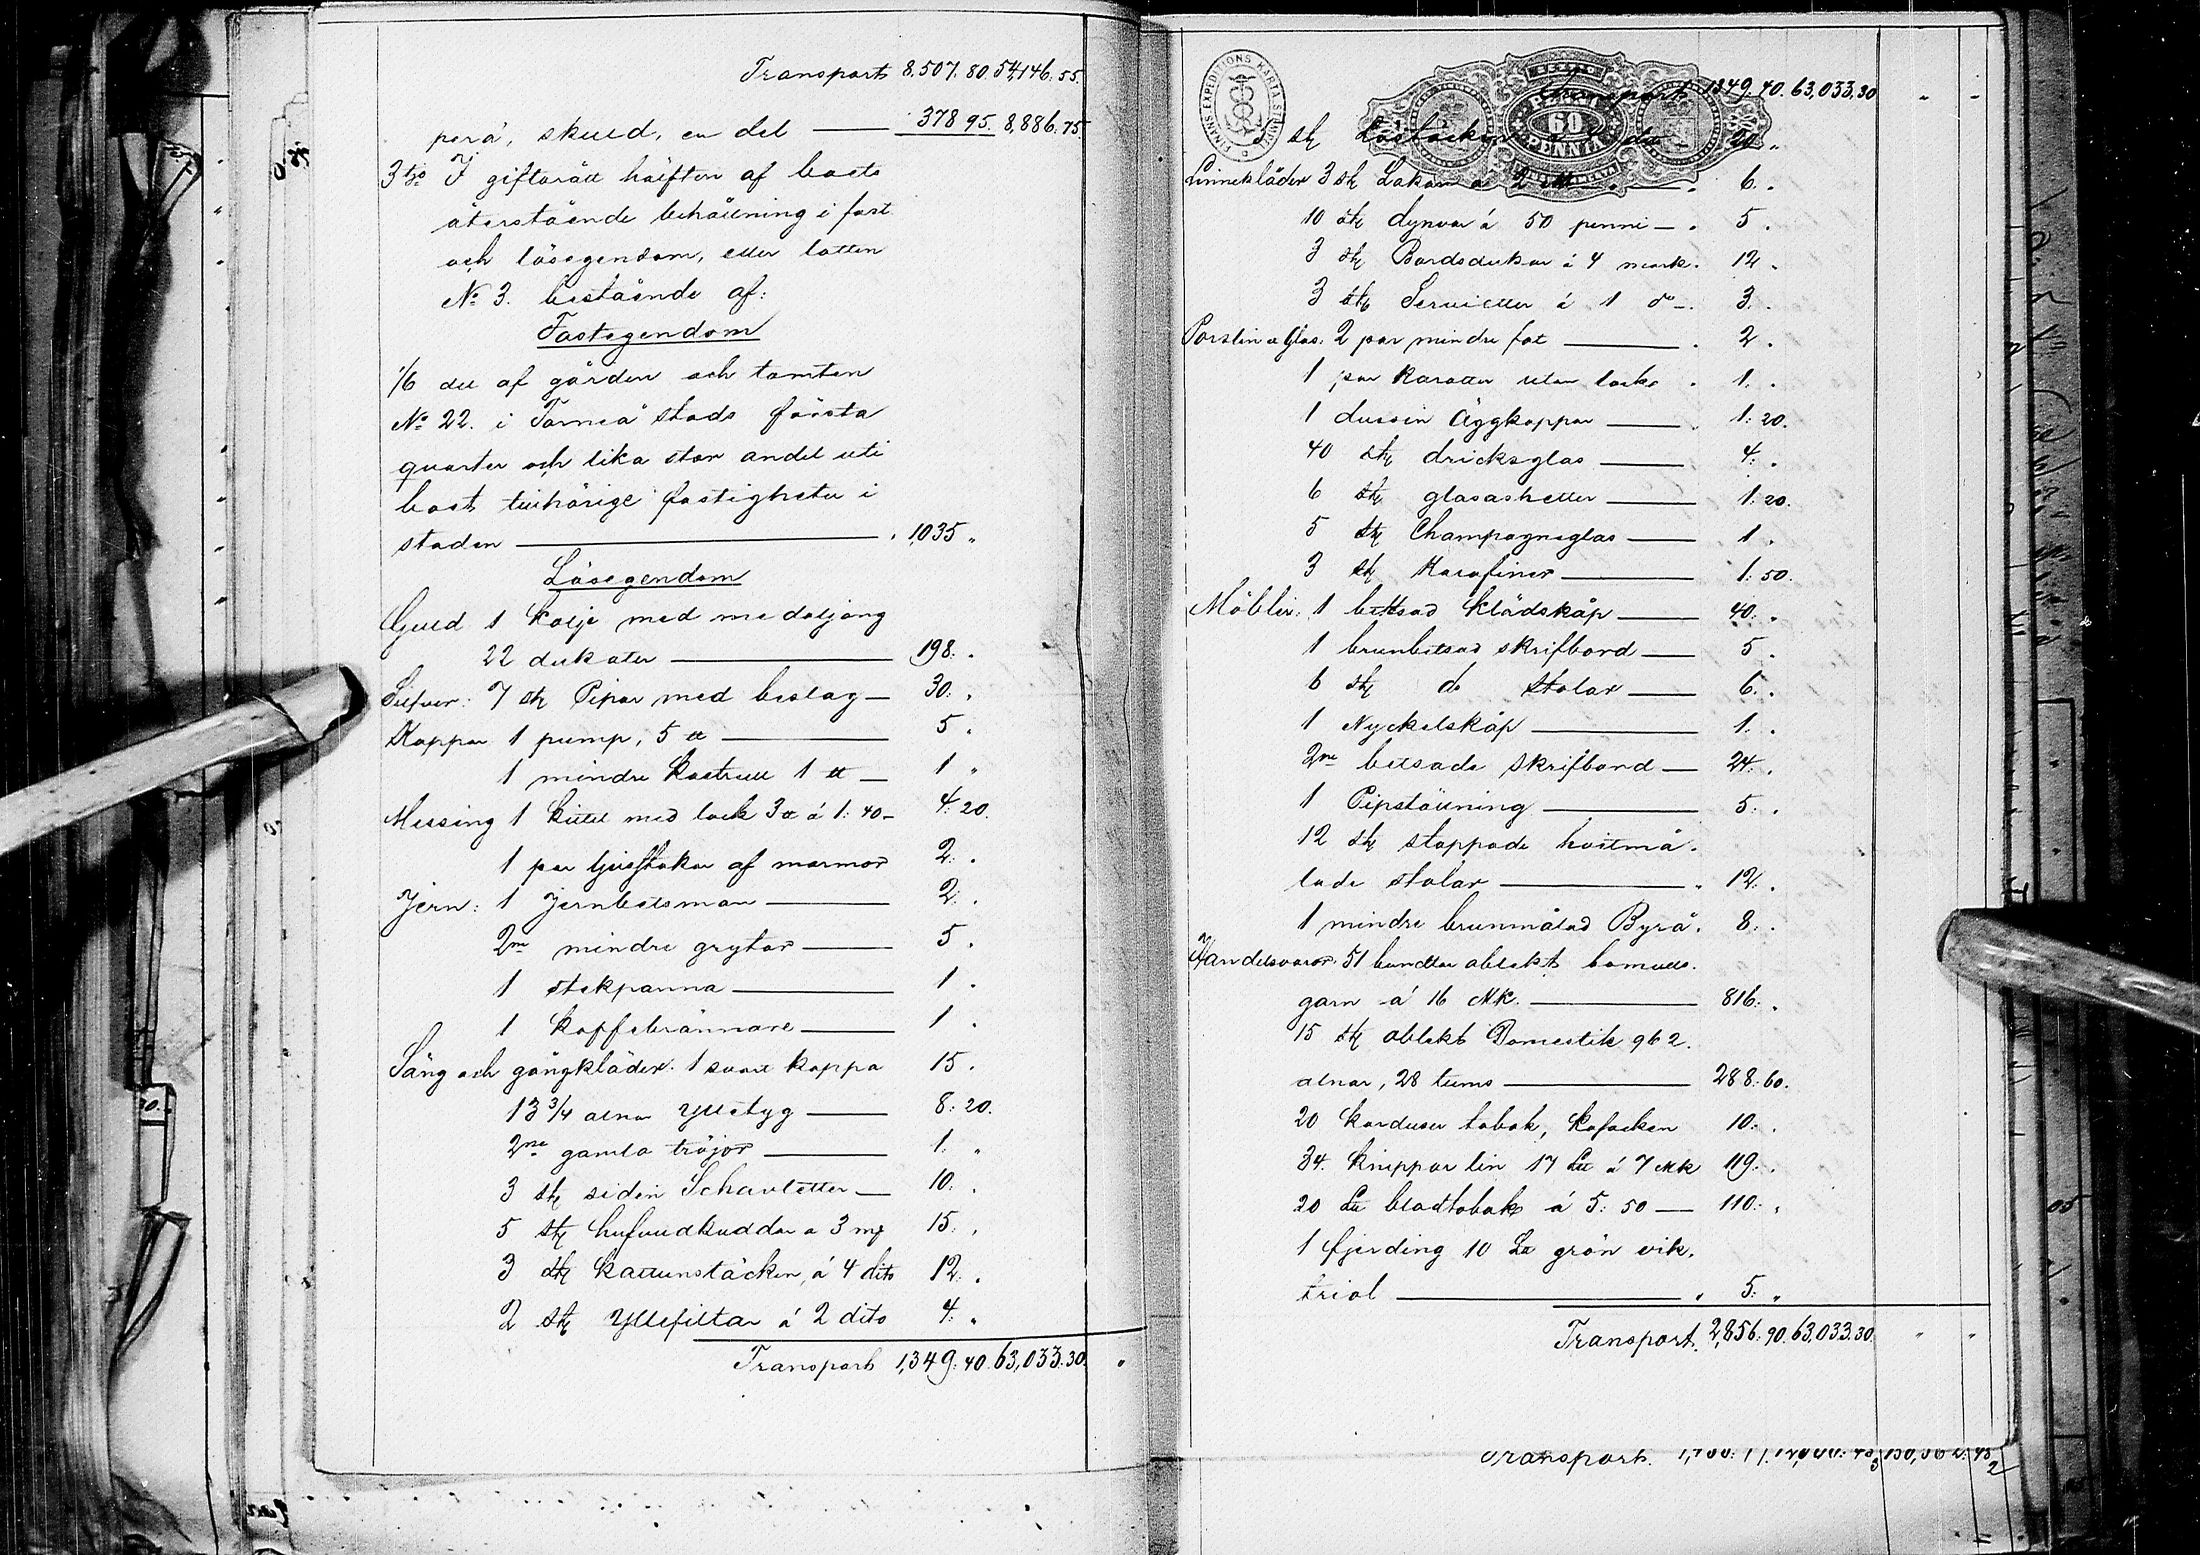 Transport 8,507. 80. 54,146. 55.
perä, skuld, en del — 378 95. 8,886. 75.
3tjo I giftorätt hälften af boets
återstående behållning i fast
och lösegendom, eller lotten
No 3. bestående af:
Fastegendom
1/6 del af gården och tomten
No 22. i Torneå stads första
quarter och lika stor andel uti
boet tillhörige fastigheter i
staden — 1,035 "
Lösegendom
Guld 1 kedje med medaljong
22 dukater — 198. "
Silfver: 7 st Pipor med beslag — 30. "
Koppar 1 pump, 5 ℔ — 5 "
1 mindre kastrull 1 ℔ — 1 "
Messing 1 kittel med lock 3 ℔ á 1: 40 — 4: 20.
1 par ljusstakar af marmor 2: "
Jern: 1 Jernbetsman — 2: "
2ne mindre grytor — 5. "
1 stekpanna — 1. "
1 kaffebrännare — 1 "
Säng och gångkläder: 1 svart kappa 15. "
13 3/4 alnar Ylletyg — 8: 20.
2ne gamla tröjor — 1. "
3 st siden Schavletter — 10. "
5 st hufvudkuddar a 3 mk 15. "
3 st kattunstäcken, á 4 dito 12: "
2 st Yllefiltar á 2 dito 4: "
Transport 1,349: 40. 63,033: 30. "
FINANS EXPEDITIONS KARTA SIGILLATA
60
PENNIÄ
Transport 1349. 40. 63,033. 30 " "
st do 20 "
Linnekläder 3 st Lakan a 2 6. "
10 st dynvar á 50 penni — 5. "
3 st Bordsdukar á 4 mark. 12. "
3 st Servietter á 1 do — 3. "
Porslin o Glas: 2 par mindre fat — 2. "
1 par karotter utan lock 1. "
1 dussin Äggkoppar — 1: 20.
40 st dricksglas — 4: "
6 st glasashetter — 1: 20.
5 st Champagneglas — 1. "
3 st Karafiner — 1: 50.
Möbler: 1 betsad klädskåp — 40: "
1 brunbetsad skrifbord — 5. "
6 st do stolar — 6. "
1 Nyckelskåp — 1. "
2ne betsade skrifbord — 24. "
1 Pipställning — 5: "
12 st stoppade hvitmå-
lade stolar — 12: "
1 mindre brunmålad Byrå. 8: "
Handelsvaror: 51 bundtar oblekt bomulls-
garn á 16 Mk. — 816: "
15 st oblekt Domestik 962.
alnar, 28 tums — 288: 60.
20 karduser tobak, 10: "
34. knippor lin 17 L℔ á 7 Mk 119. "
20 L℔ bladtobak á 5: 50 — 110: "
1 fjerding 10 L℔ grön vik-
triol — 5: "
Transport. 2,856: 90. 63,033. 30. " "
Transport.